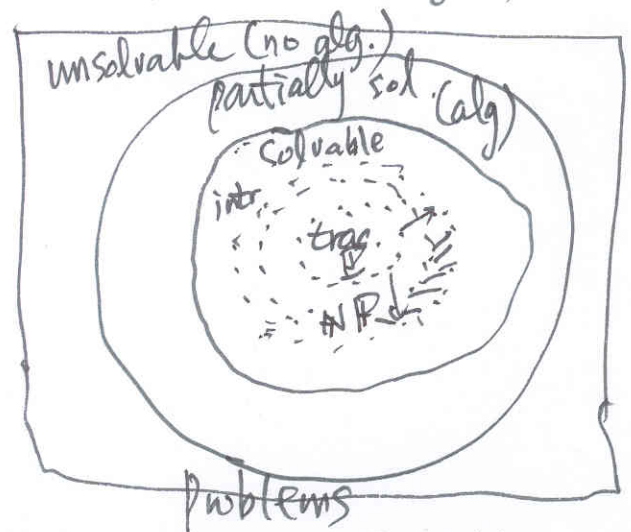 unsolvable (no alg.)
partially sol. (alg)
solvable
intr.
trac.
NP
Problems